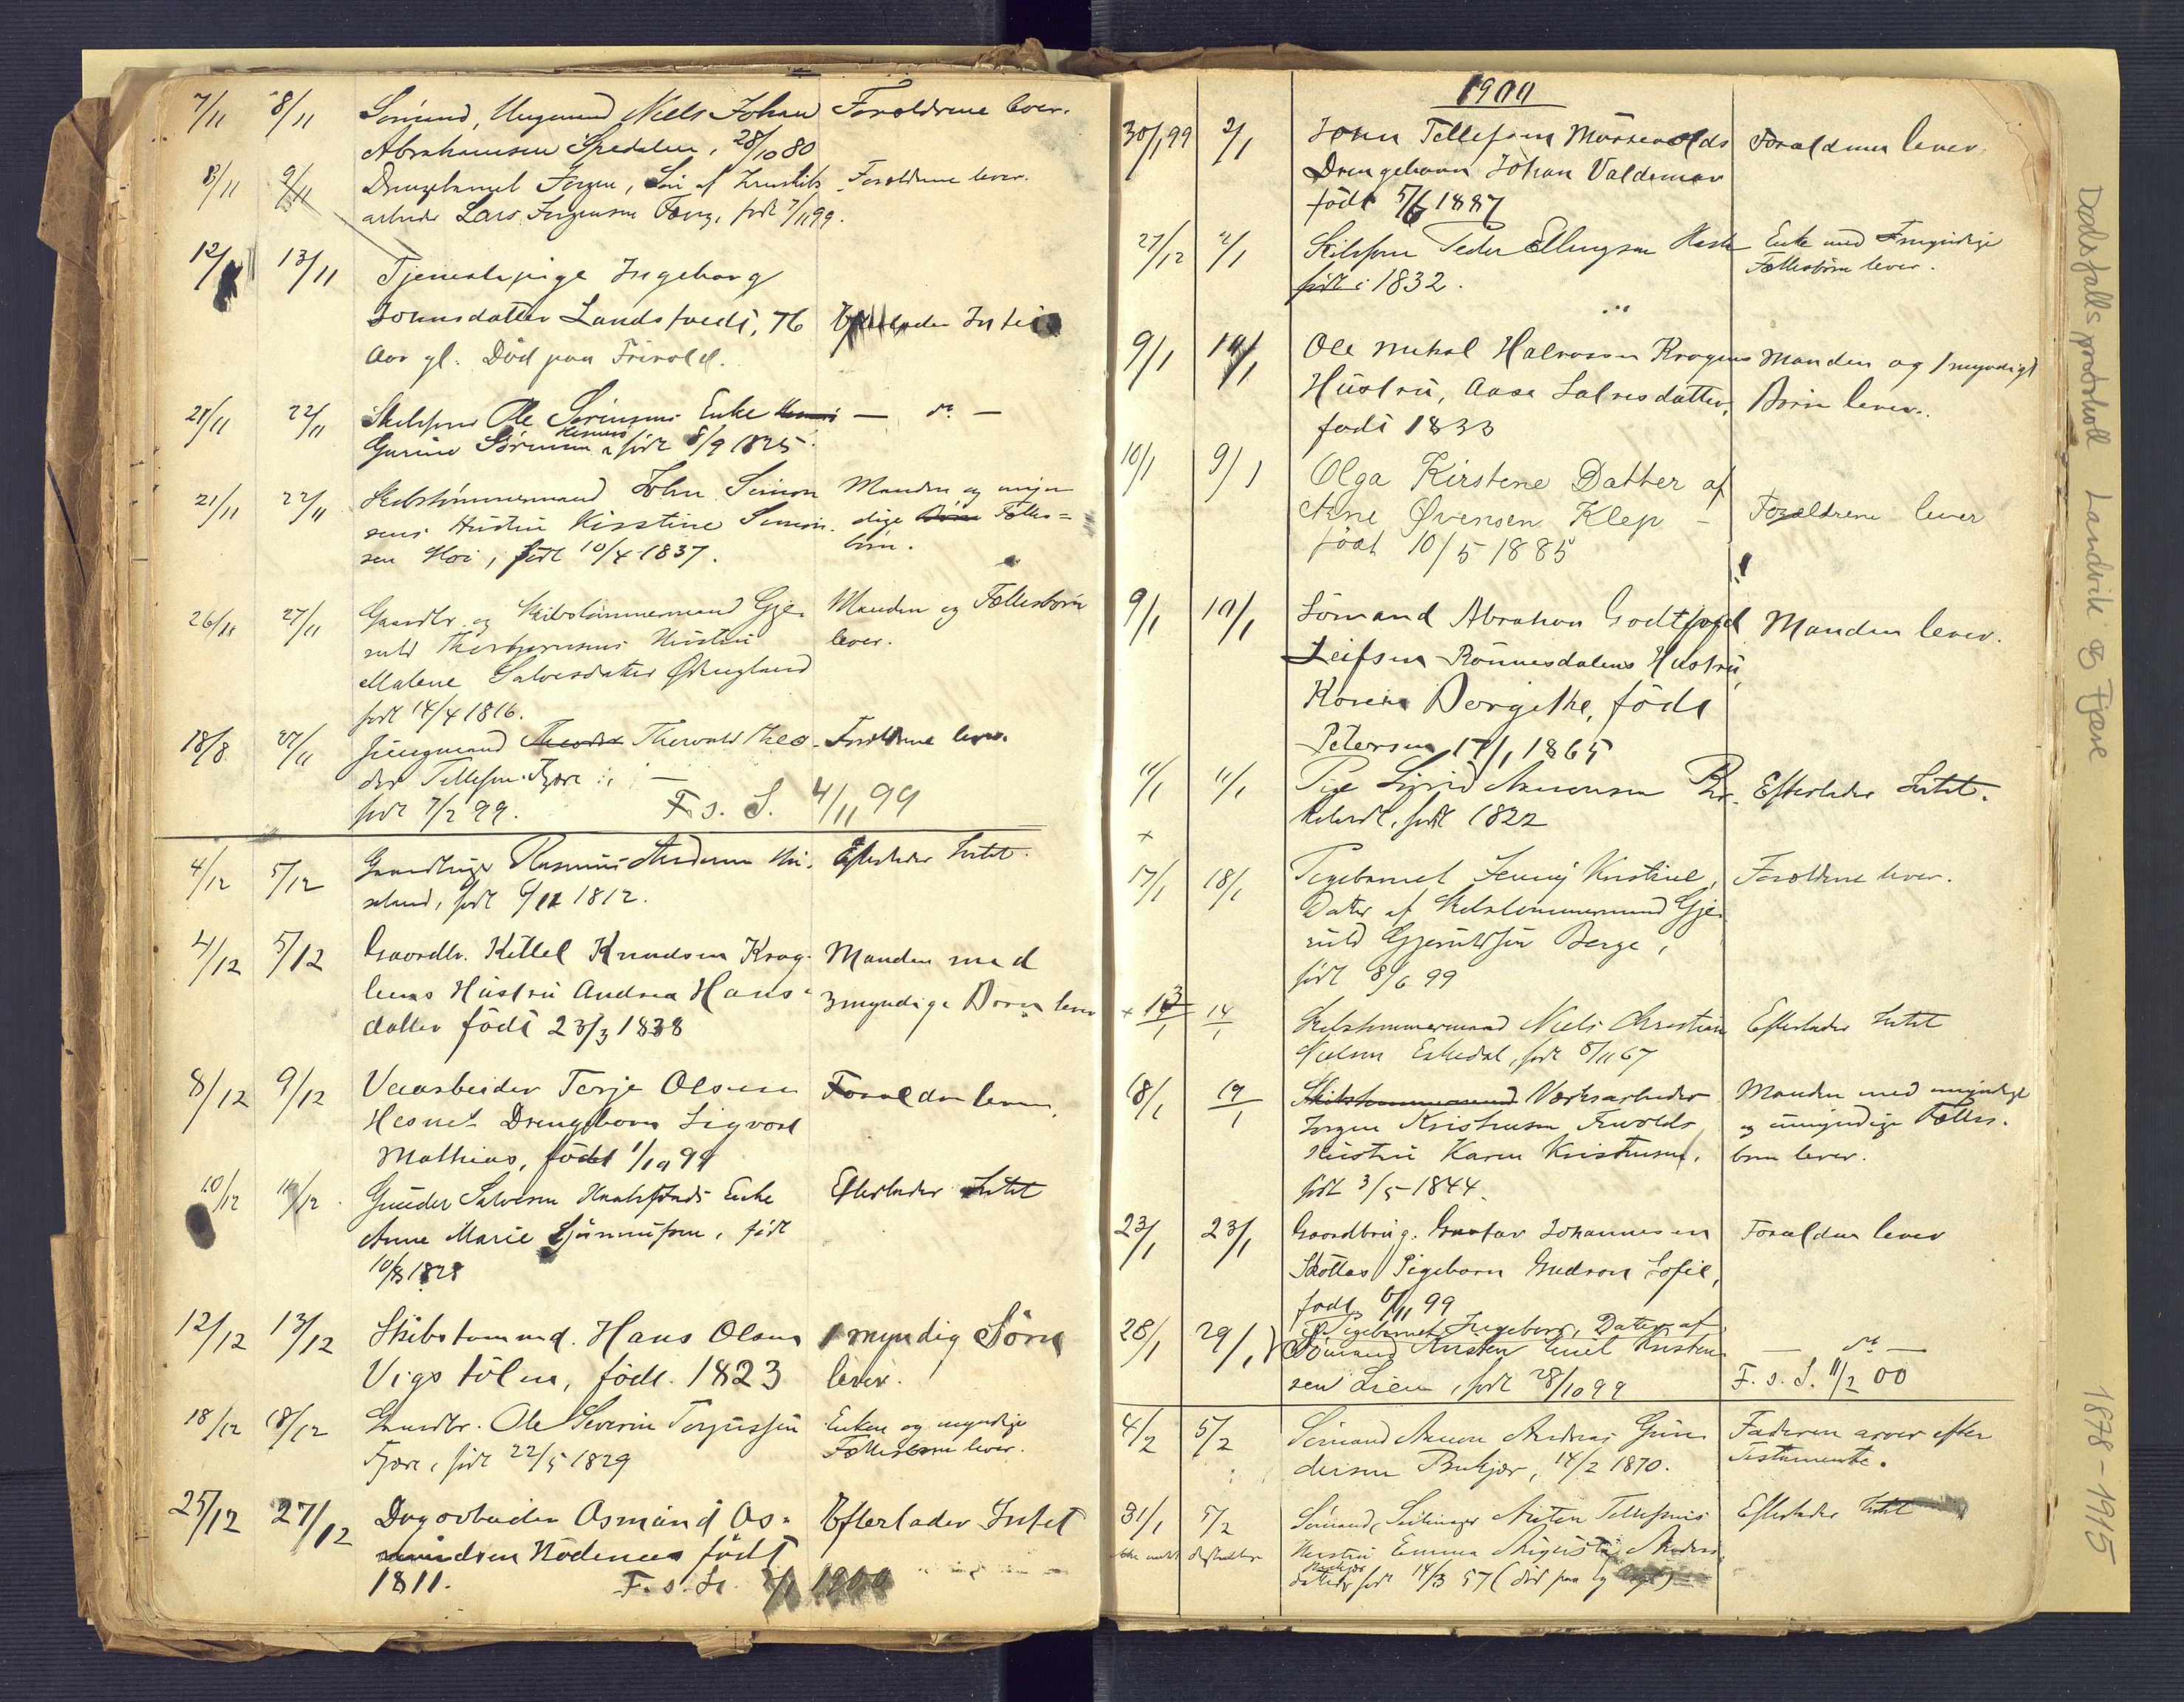 7/11 8/11 Sømand, Ungmand Niels Johan Forældrene lever.
Abrahamsen Spedalen, 28/10 80
8/11 9/11 Drengebarnet Jørgen, Søn af
arbeider Lars Jørgensen født 7/11 99.
Forældrene lever.
12/11 13/11 Tjenestepige Ingeborg
Johnsdatter Landstvedt, 76 Efterlader Intet
Aar gl. Død paa Frivold.
21/11 22/11 Skibsfører Ole Sørensens Enke — do —
Gurine Sørensen Hesnes, født 8/9 1825.
21/11 22/11 Skibstømmermand John Simon
sens Hustru Kirstine Simon
sen Moi, født 10/4 1837.
Manden og myn
dige Fælles=
børn.
26/11 27/11 Gaardbr. og Skibstømmermand Gje
ruld Thorbjørnsens Hustru
Malene Salvesdatter
født 14/4 1816.
Manden og Fællesbørn
lever.
18/8 27/11 Jungmand Thorvald Theo
dor Tellefsen Fjære
født 7/2 99. F. s. S. 4/11 99
Forældrene lever.
4/12 5/12 Gaardbruger Rasmus Andersen
født 6/12 1812.
Efterlader Intet.
4/12 5/12 Gaardbr. Kittel Knudsen Krag
lens Hustru Andrea Hans-
datter født 23/3 1838
Manden med
3 myndige Børn lever
8/12 9/12 Terje Olsen
Hesnes Drengebarn Sigvart
Mathias, født 1/10 99
Forældre lever.
10/12 11/12 Gunder Salvesen Enke
Anne Marie født
10/8 1828
Efterlader Intet
12/12 13/12 Skibstømmd. Hans Olsen 1 myndig Søn
Vigstølen, født 1823 lever.
18/12 18/12 Gaardbr. Ole Severin Torjussen
Fjære, født 22/5 1829
Enken og myndige
Fællesbørn lever.
25/12 27/12 Dagarbeider Asmund As-
mundsen Nødenes født
1811. F. s. S. 2/1 1900
Efterlader Intet
1900
30/1 99 2/1 John Tellefsen Morvolds
Drengebarn Johan Valdemar
født 5/6 1887
Forældrene lever.
27/12 2/1 Skibsfører Peder Ellingsen
født i 1832.
Enke med myndige
Fællesbørn lever.
9/1 10/1 Ole Mikal Halvorsen Kragens
Hustru, Aase Salvesdatter,
født 1833
Manden og 1 myndigt
Barn lever.
10/1 9/1 Olga Kirstene Datter af
Arne Øvensen Klep -
født 10/5 1885
Forældrene lever
9/1 10/1 Sømand Abraham Godtfred
Leifsen Rønnesdalens Hustru,
Karen Bergithe, født
Petersen 17/1 1865
Manden lever.
11/1 11/1 Pige Sigrid Aanonsen
født 1822
Efterlader Intet.
×
17/1 18/1 Pigebarnet Jenny Kristine,
Datter af Skibstømmermand Gje
ruld Gjeruldsen Berge,
født 8/6 99
Forældrene lever.
× 13/1 14/1 Skibstømmermand Niels Christian
Nielsen Eskedal, født 8/11 67
Efterlader Intet
18/1 19/1 Skibstømmermand Værksarbeider
Jørgen Kristensen Frivolds
Hustru Karen Kristensen,
født 3/5 1844.
Manden med myndige
og umyndige Fælles-
børn lever.
23/1 23/1 Gaardbrug. Gustav Johannesen
Skottas Pigebarn Gudron Sofie,
født 6/11 99
Forældrene lever
28/1 29/1 Pigebarnet Ingeborg, Datter af
Sømand Kristen Emil Kristen
sen Lien, født 28/10 99
— do —
F. s. S. 11/2 00
4/2 5/2 Sømand Aanon Andreas Gun
dersen Bukjær, 14/2 1870.
Faderen arver efter
Testamente.
31/1 5/2 Sømand, Tellefsens
Hustru Emma Augusta Anders
datter født 14/3 57
Efterlader Intet
Dødsfallsprotokoll Landvik og Fjære 1878-1915